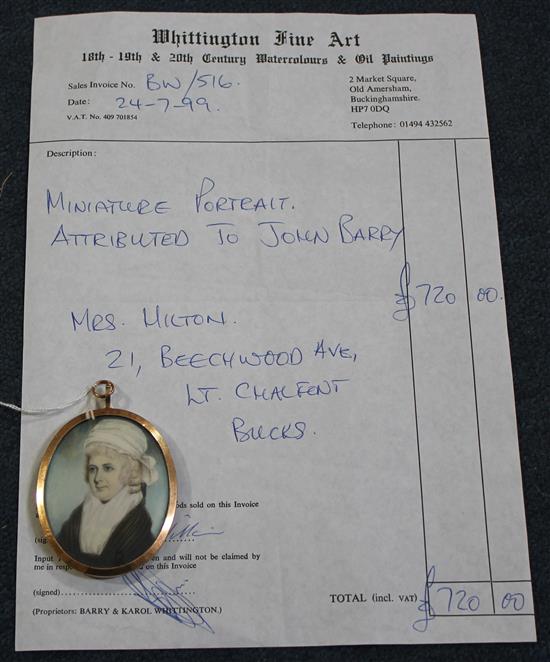 Whittington Fine Art
18th - 19th & 20th Century Watercolours & Oil Paintings
Sales Invoice No. BW/516.
Date: 24-7-99.
V.A.T. No. 409 701854
2 Market Square,
Old Amersham,
Buckinghamshire.
HP7 0DQ
Telephone: 01494 432562
Description:
MINIATURE PORTRAIT.
ATTRIBUTED TO JOHN BARRY
£720 00.
MRS. HILTON.
21, BEECHWOOD AVE,
LT. CHALFENT
BUCKS.
ods sold on this Invoice
(sig
Input en and will not be claimed by
me in resp d on this Invoice
(signed)
(Proprietors: BARRY & KAROL WHITTINGTON.)
TOTAL (incl. VAT) £720 00